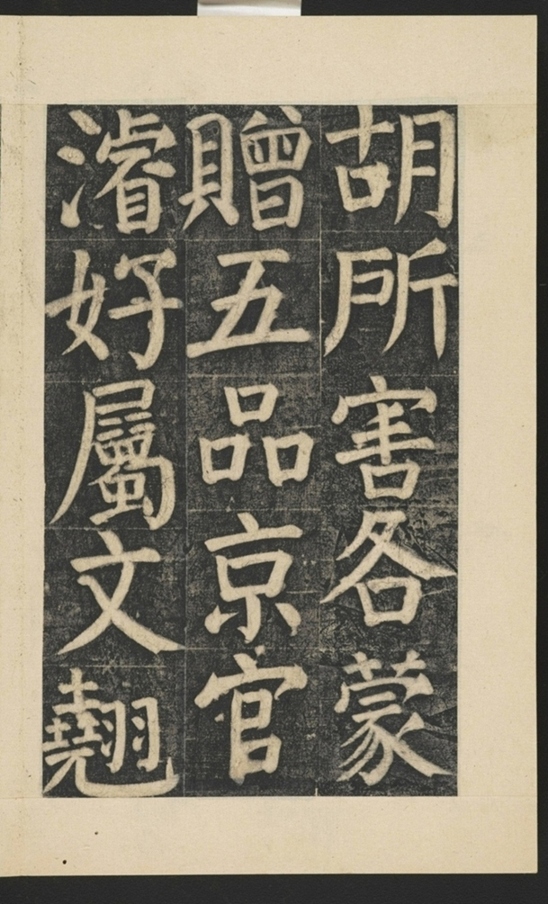 胡所害各蒙
贈五品京官
濬好屬文翹